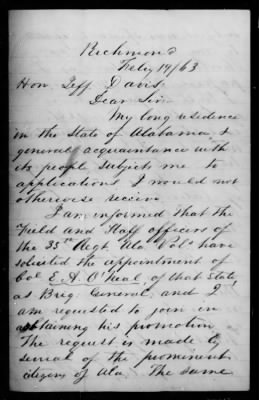 Richmond
Feby 19/63
Hon. Jeff. Davis
Dear Sir
My long residence
in the State of Alabama &
general acquaintance with
its people subjects me to
applications I would not
otherwise receive
I am informed that the
Field and Staff officers of
the 35th Regt. Ala Vols have
solicited the appointment of
Col E. A. O'Neal of that State,
as Brig. General, and I
am requested to join in
obtaining his promotion.
The request is made by
several of the prominent
citizens of Ala. The same